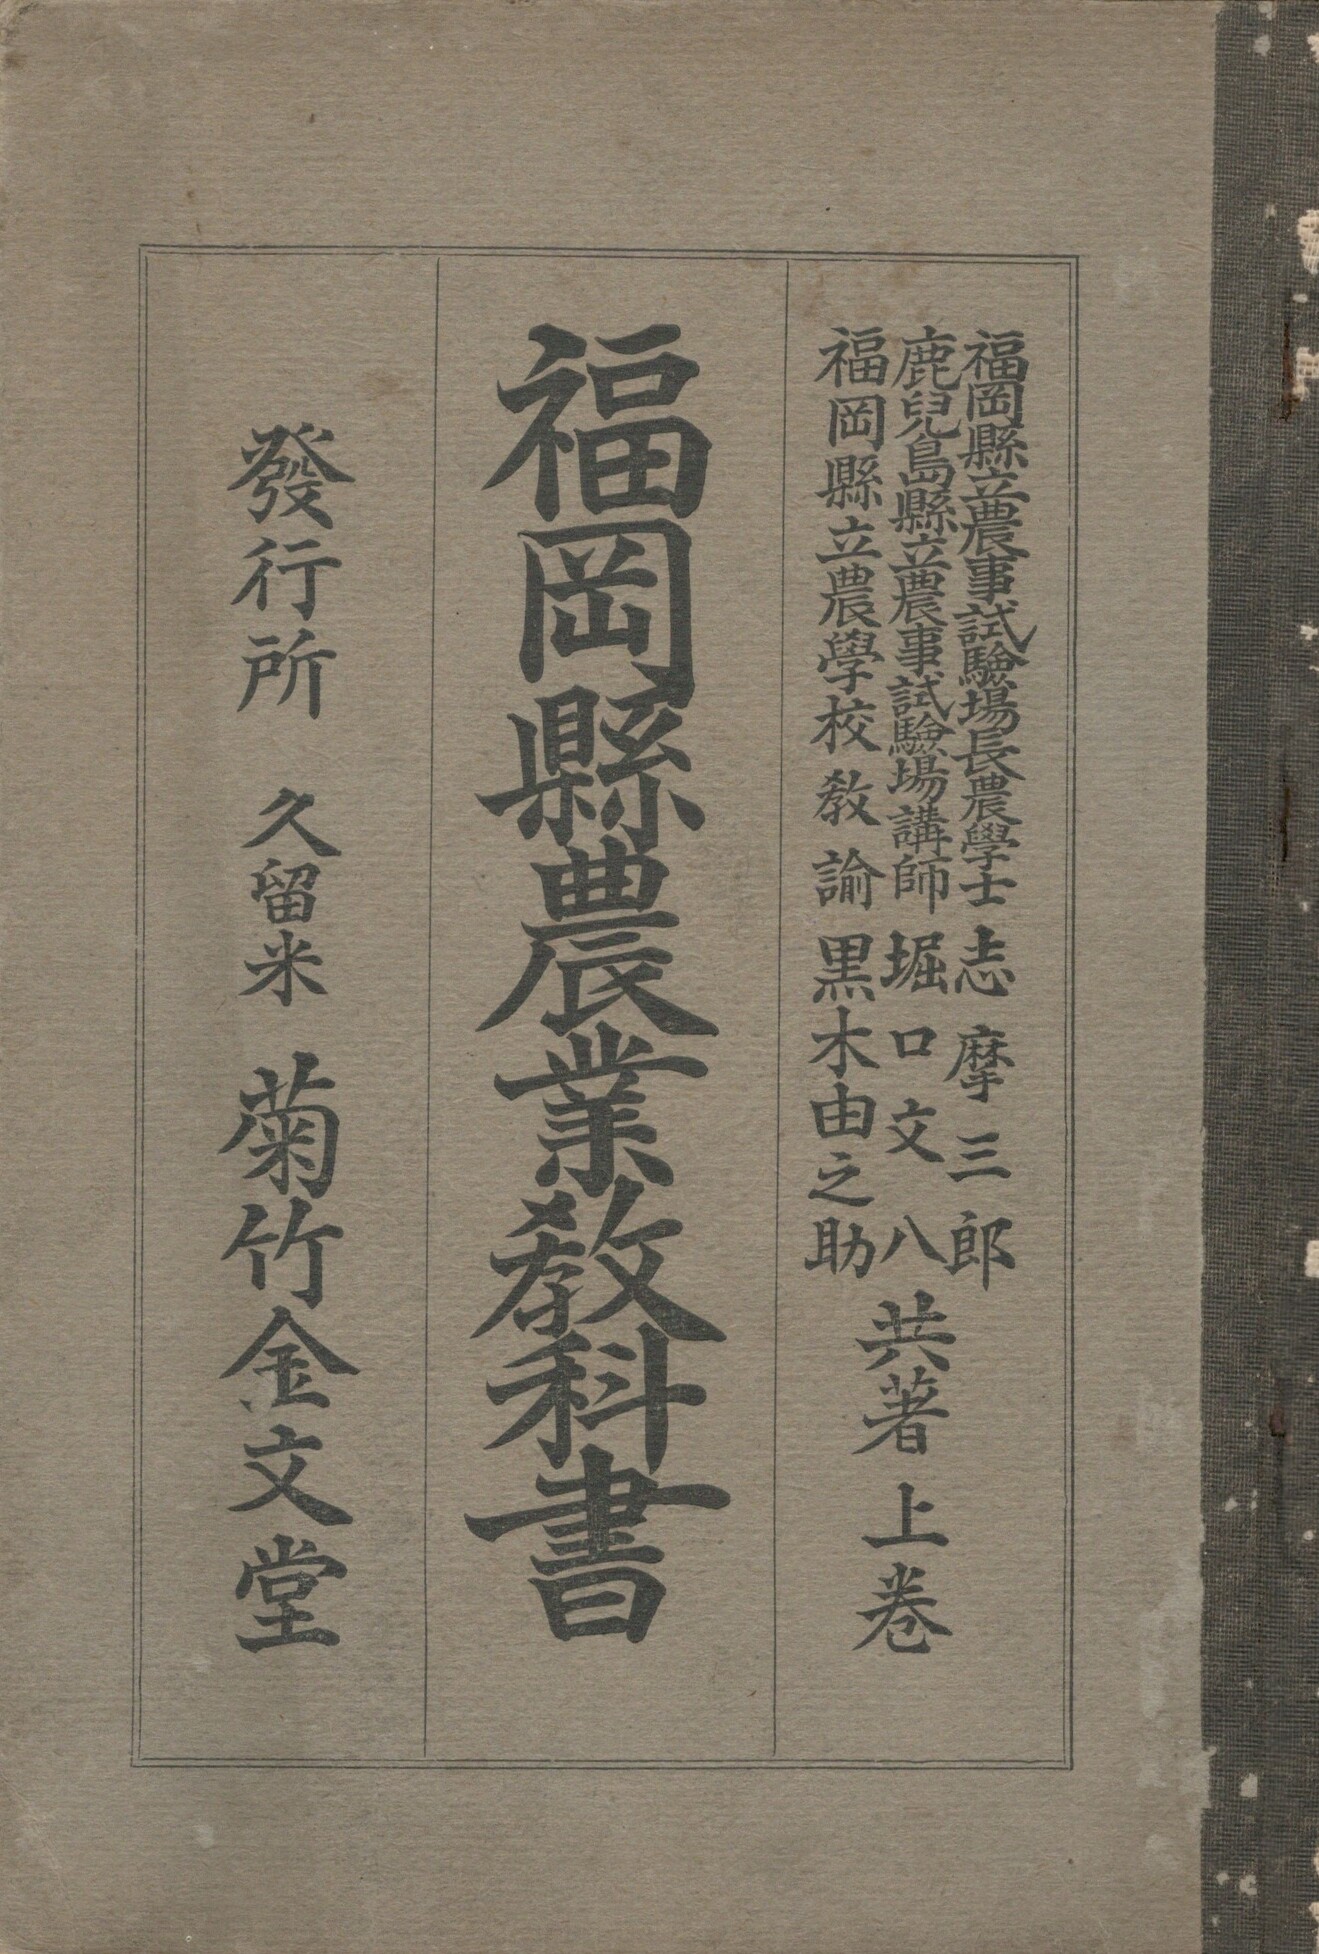 福岡縣立農事試驗場長農學士 志摩三郎
鹿兒島縣立農事試驗場講師 堀口文八
福岡縣立農學校教諭 黒木由之助
共著 上卷
福岡縣農業敎科書
發行所 久留米 菊竹金文堂